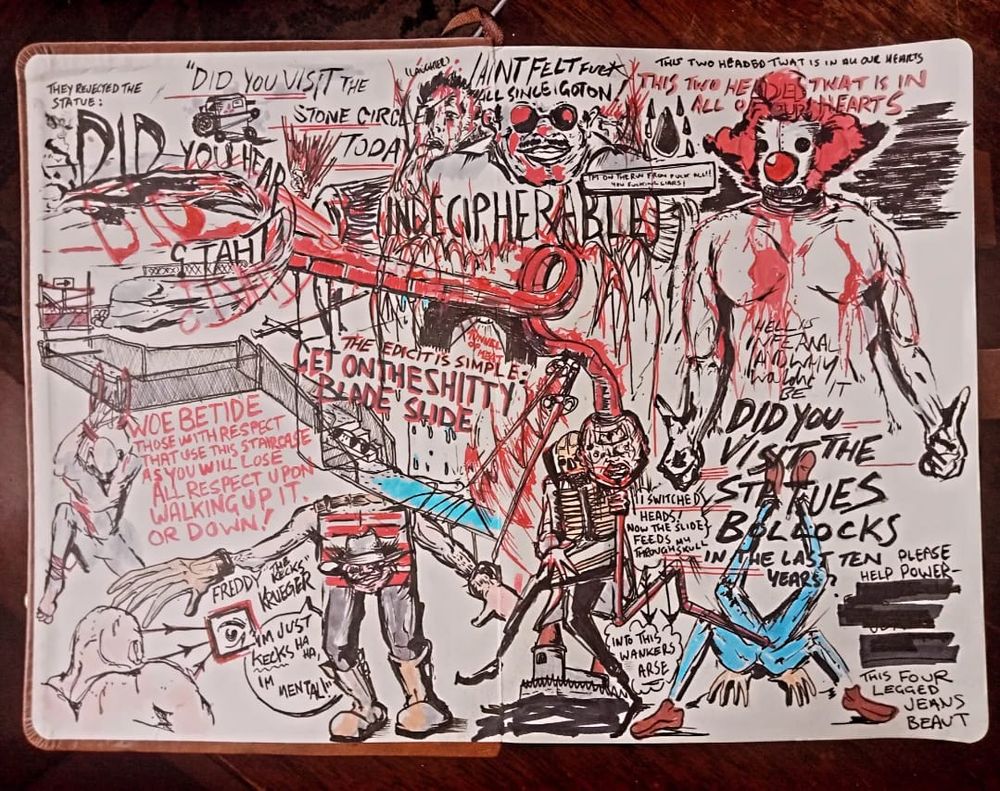 THEY REJECTED THE
STATUE:
"DID YOU VISIT THE
STONE CIRCLE
TODAY
DID
YOU HEAR
(LAUGHTER)
I AINT FELT FUCK
ALL SINCE I GOT ON!
INDECIPHERABLE
I'M ON THE RUN FROM FUCK ALL!!
YOU FUCKING LIARS!
THIS TWO HEADED TWAT IS IN ALL OUR HEARTS
THIS TWO HEADED TWAT IS IN
ALL OF OUR HEARTS
HELL IS
INFERNAL
AND WHY
WOULDNT IT
BE
TUNNEL
OF MEAT
THE EDICIT IS SIMPLE:
GET ON THE SHITTY
BLADE SLIDE
WOE BETIDE
THOSE WITH RESPECT
THAT USE THIS STAIRCASE
AS YOU WILL LOSE
ALL RESPECT UPON
WALKING UP IT.
OR DOWN!
FREDDY "THE
KECKS"
KRUEGER
"I'M JUST
KECKS HA
HA,
I'M
MENTAL!"
I SWITCHED
HEADS!
NOW THE SLIDE
FEEDS MY
THROUGH SKULL
INTO THIS
WANKERS
ARSE
DID YOU
VISIT THE
STATUES
BOLLOCKS
IN THE LAST TEN
YEARS?
PLEASE
HELP POWER-
THIS FOUR
LEGGED
JEANS
BEAUT